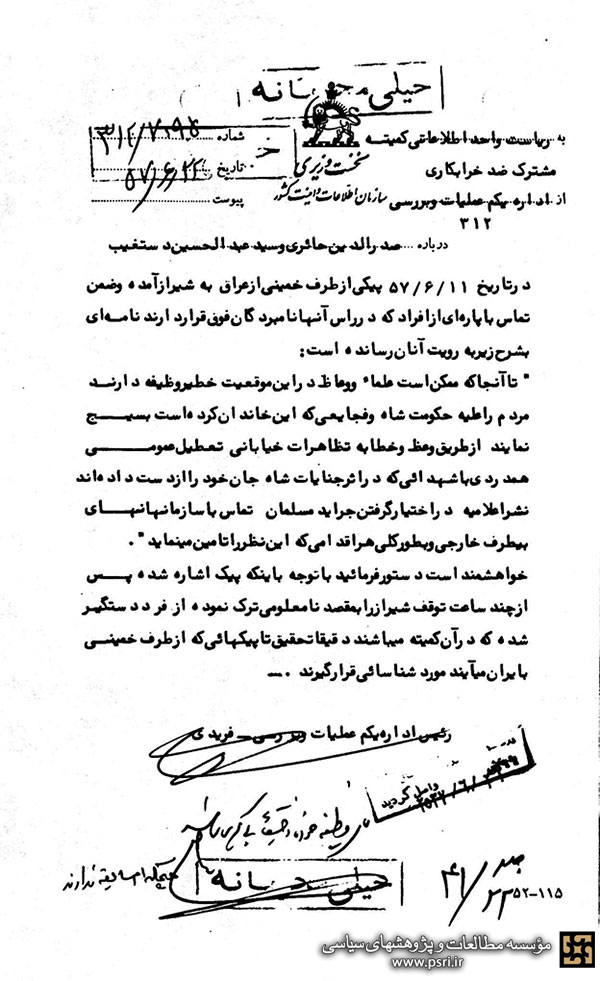 خیلی محرمانه
به ریاست واحد اطلاعاتی کمیته
مشترک ضد خرابکاری
از اداره یکم عملیات و بررسی
۳۱۲
نخست وزیری
سازمان اطلاعات و امنیت کشور
شماره ۳۱۲/۷۰۹۵
تاریخ ۵۷/۶/۲۲
پیوست
درباره صدرالدین حائری و سید عبدالحسین دستغیب
در تاریخ ۵۷/۶/۱۱ پیکی از طرف خمینی از عراق به شیراز آمده و ضمن
تماس با پاره‌ای از افراد که در راس آنها نامبردگان فوق قرار دارند نامه‌ای
بشرح زیر به رویت آنان رسانده است:
"تا آنجا که ممکن است علماء و وعاظ در این موقعیت خطیر وظیفه دارند
مردم را علیه حکومت شاه و فجایعی که این خاندان کرده است بسیج
نمایند از طریق وعظ و خطابه تظاهرات خیابانی تعطیل عمومی
همدردی با شهدائی که در اثر جنایات شاه جان خود را از دست داده‌اند
نشر اعلامیه در اختیار گرفتن جراید مسلمان تماس با سازمانهای
بیطرف خارجی و بطور کلی هر اقدامی که این نظر را تامین مینماید".
خواهشمند است دستور فرمائید با توجه باینکه پیک اشاره شده پس
از چند ساعت توقف شیراز را بمقصد نامعلومی ترک نموده از فرد دستگیر
شده که در آن کمیته میباشند دقیقا تحقیق تا پیکهائی که از طرف خمینی
بایران میآیند مورد شناسائی قرار گیرند.
رئیس اداره یکم عملیات و بررسی فریدی
واصل گردید
خیلی محرمانه
هیچکدام سابقه ندارند
۵۲-۱۱۵
مؤسسه مطالعات و پژوهشهای سیاسی
www.psri.ir